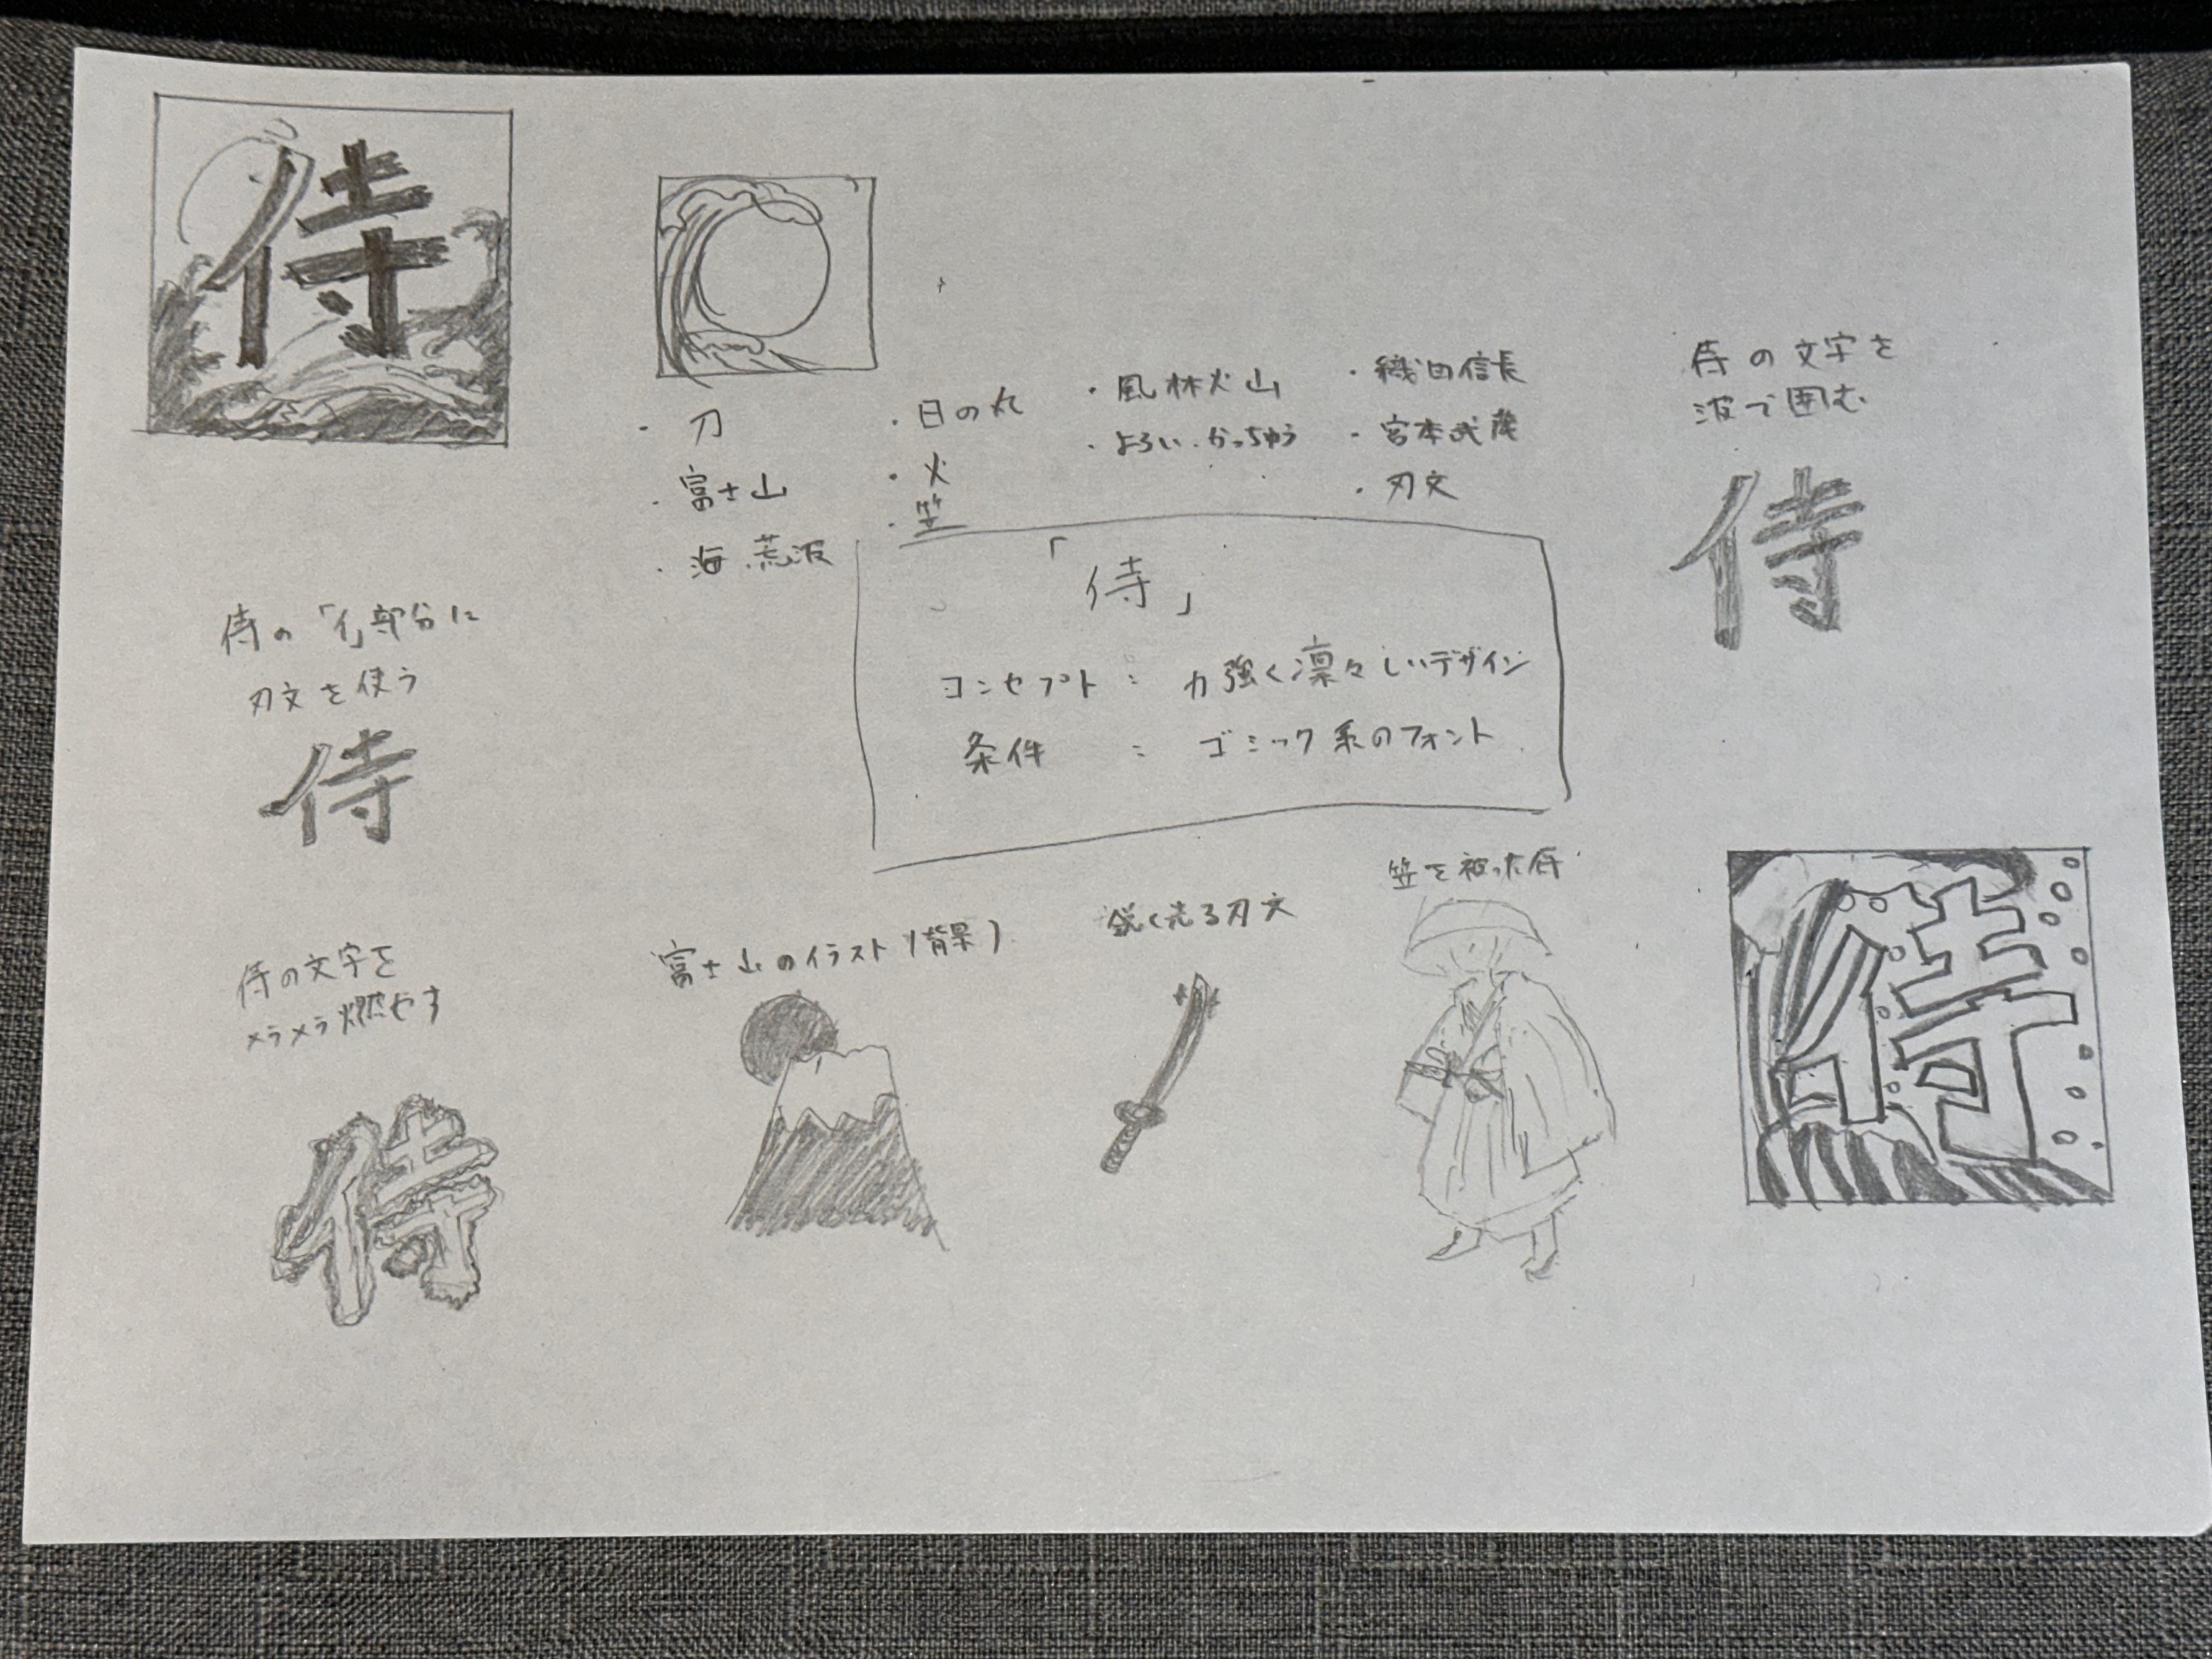 侍
・刀
・富士山
・海、荒波
・日の丸
・火
・笠
・風林火山
・よろい、かっちゅう
・織田信長
・宮本武蔵
・刃文
侍の文字を
波で囲む
侍
「侍」
コンセプト：力強く凛々しいデザイン
条件：ゴシック系のフォント
侍の「亻」部分に
刃文を使う
侍
侍の文字を
メラメラ燃やす
侍
富士山のイラスト(背景)
鋭く光る刃文
笠を被った侍
侍